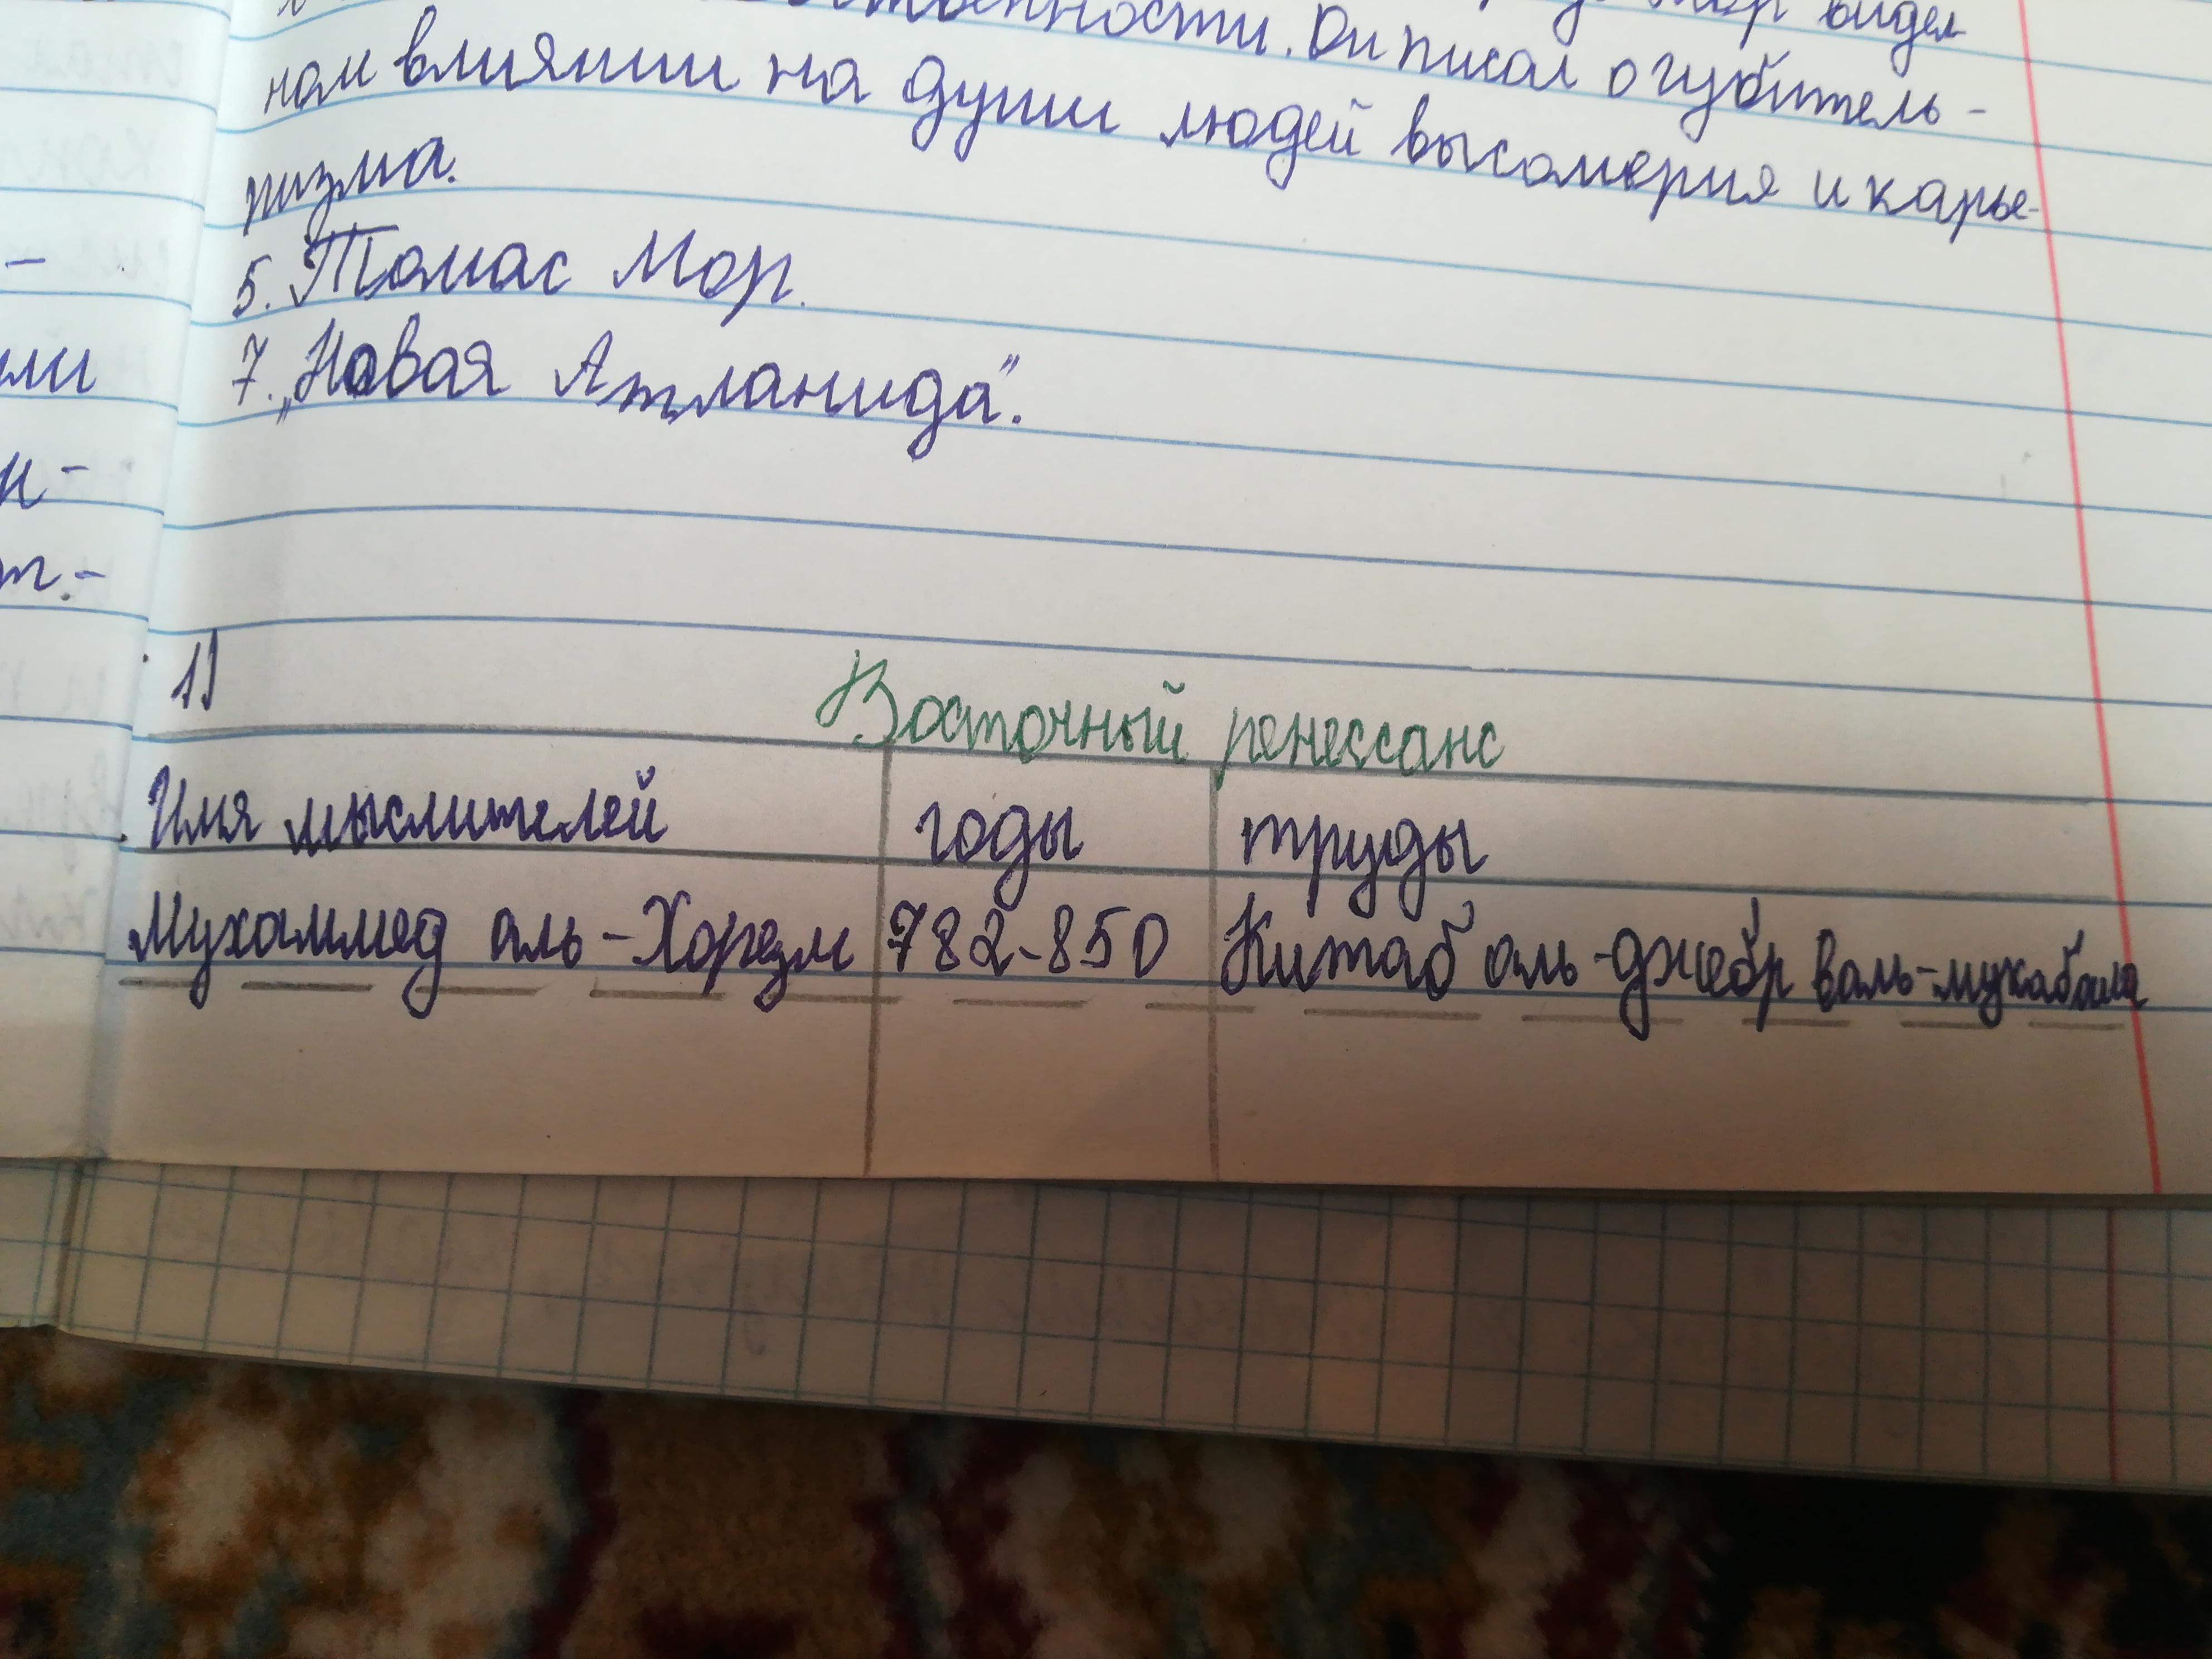 видел
. Он писал о губитель-
ном влиянии на души людей высомерия и карье-
ризма.
5. Томас Мор.
7. „Новая Атланида".
1)
Восточный ренессанс
Имя мыслителей годы труды
Мухаммед аль-Хорезм 782-850 Китаб аль-джебр валь-мукабала